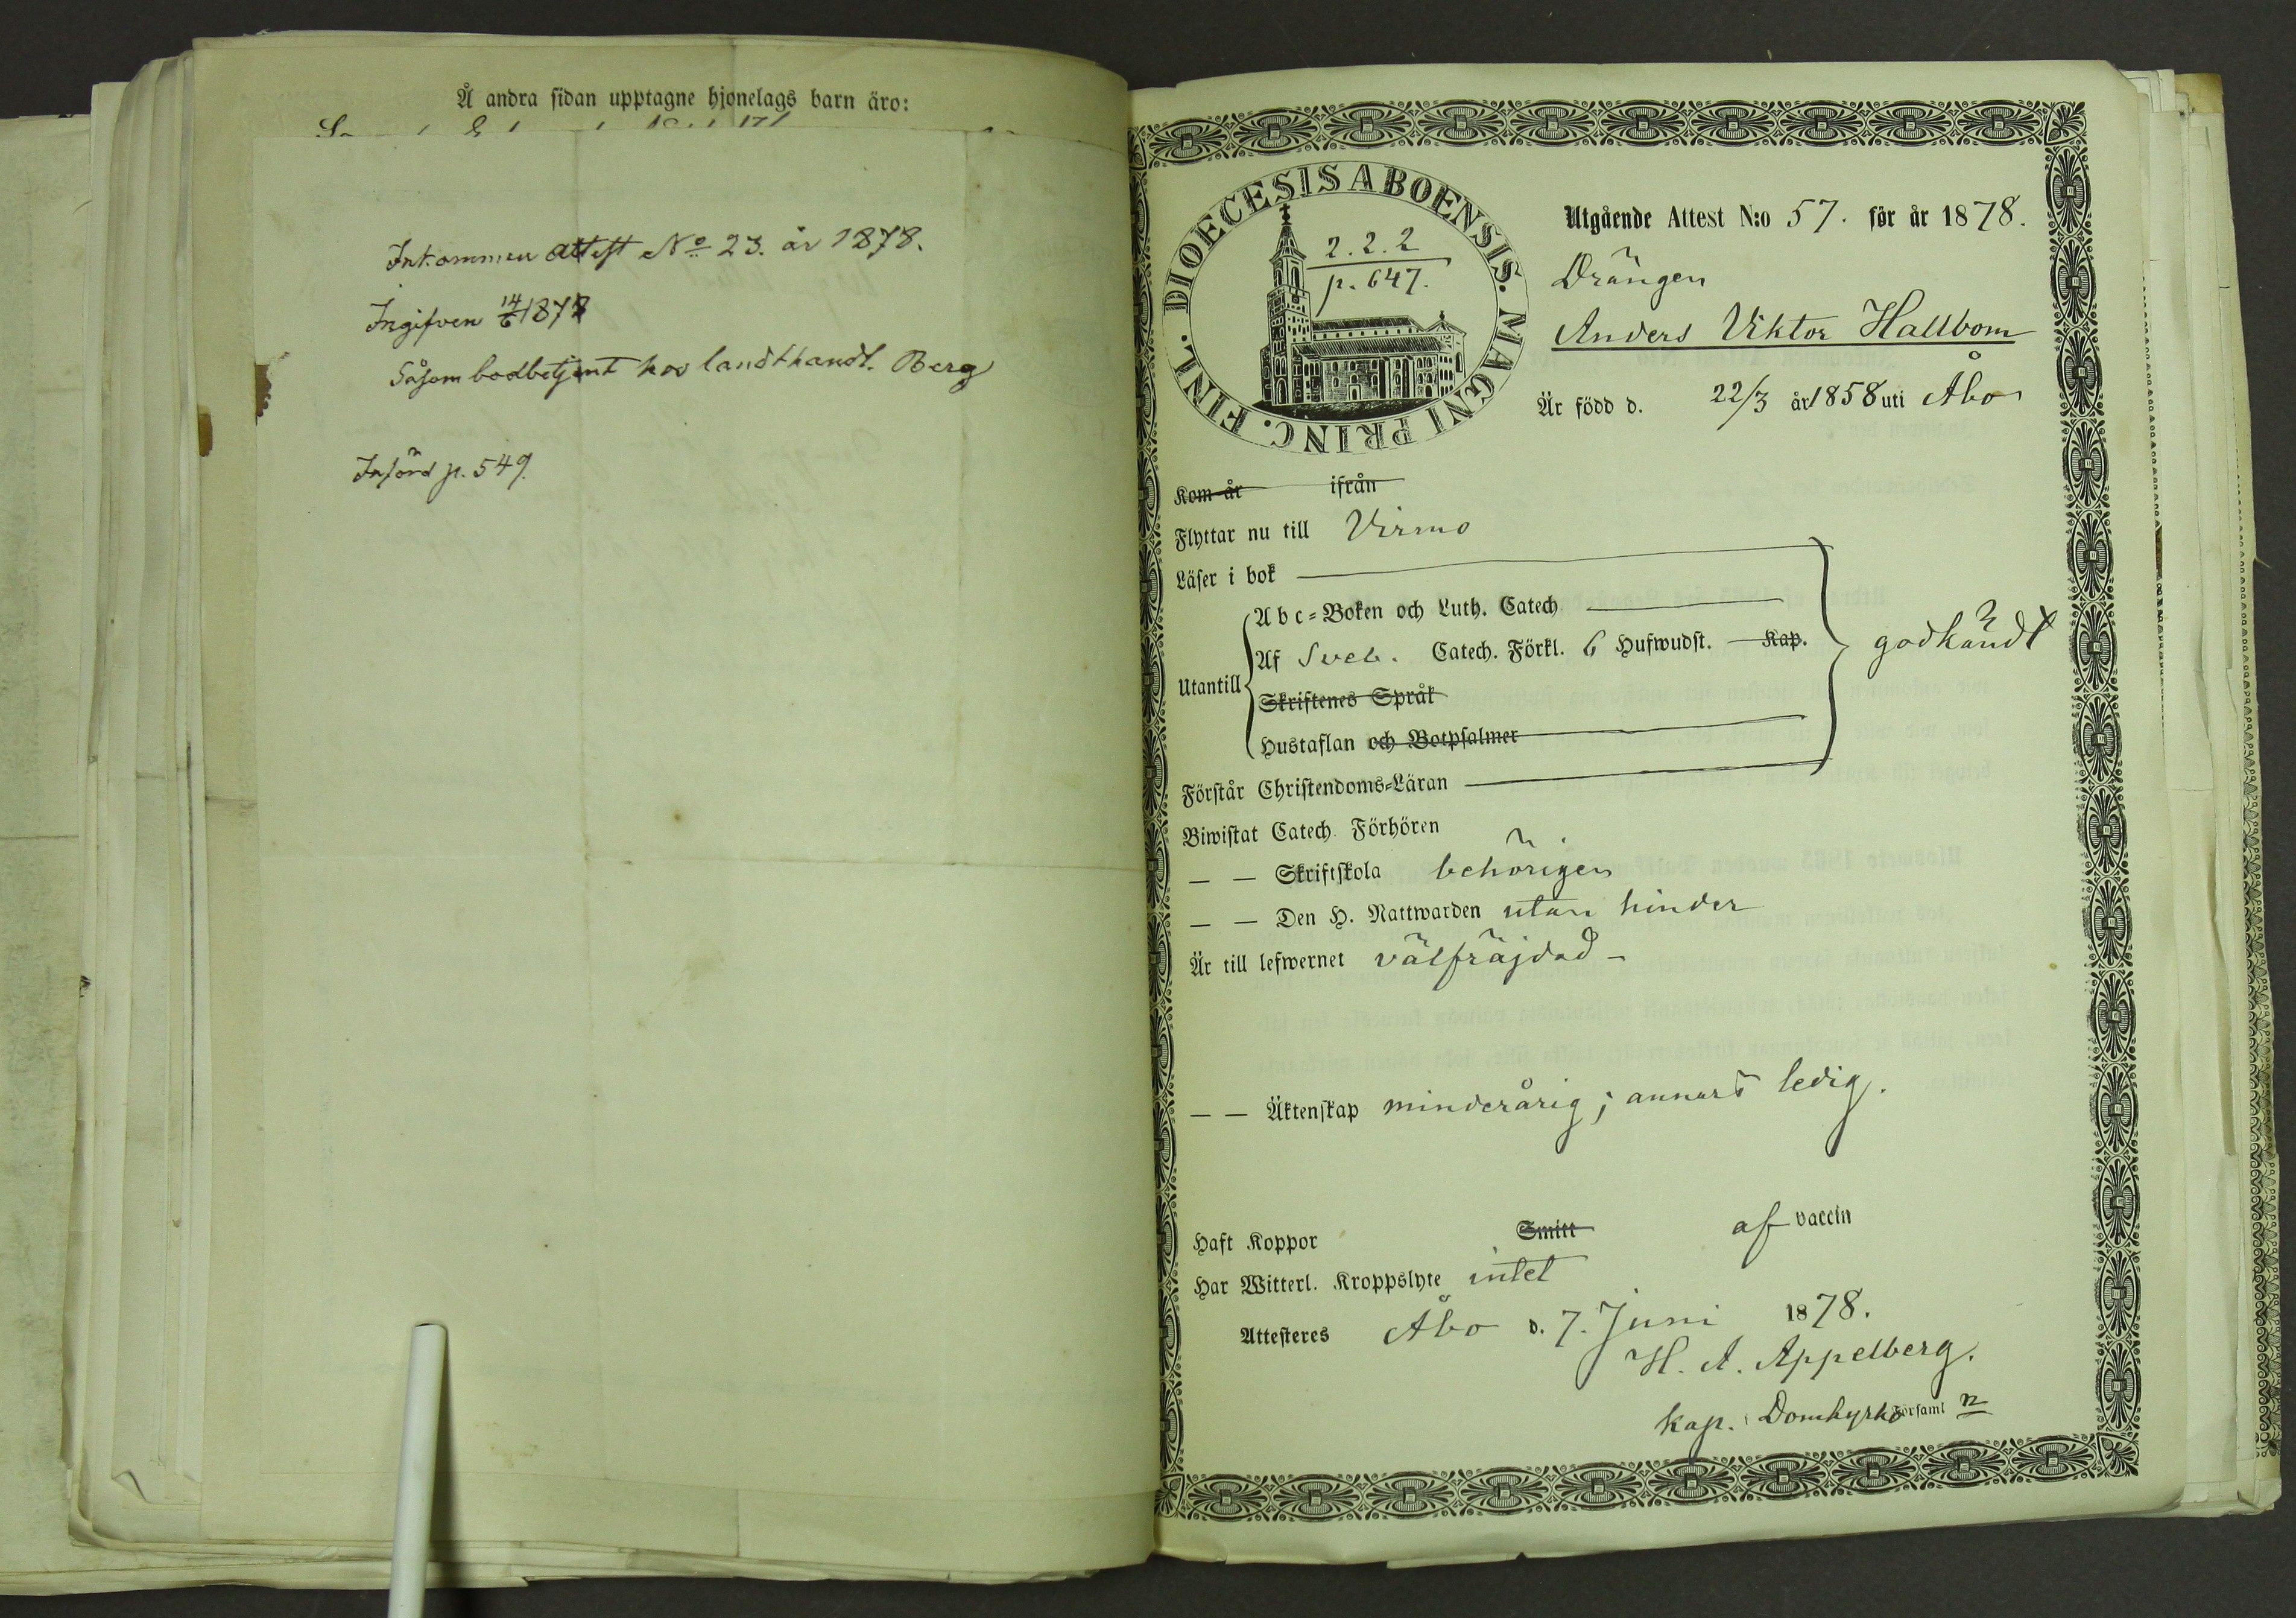 Å andra sidan upptagne hjonelags barn äro:
Inkommen attest No 23. år 1878.
Ingifven 14/6 1878
Såsom bodbetjent hos landthandl. Berg
Införd p. 549.
DIOECESIS ABOENSIS. MAGNI PRINC. FINL.
2.2.2
p. 647.
Utgående Attest N:o 57. för år 1878.
Drängen
Anders Viktor Hallbom
Är född d. 22/3 år 1858 uti Åbo
Kom år ifrån
Flyttar nu till Virmo
Läser i bok
Abc=Boken och Luth. Catech
Af Sveb. Catech. Förkl. 6 Hufwudst. Kap.
godkändt
Utantill
Skriftenes Språk
Hustaflan och Botpsalmer
Förstår Christendoms=Läran
Biwistat Catech. Förhören
— — Skriftskola behörigen
— — Den H. Nattwarden utan hinder
Är till lefwernet välfräjdad —
— — Äktenskap minderårig; annars ledig.
Haft Koppor Smitt af vaccin
Har Witterl. Kroppslyte intet
Attesteres Åbo d. 7. Juni 1878.
H. A. Appelberg.
Kap. i Domkyrko Församl n